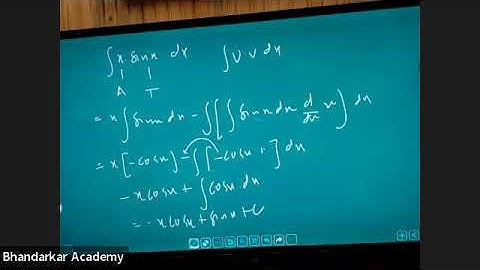 ∫ x sinx dx   ∫ U·V dx
A   T
= x ∫ sinx dx − ∫ [ ∫ sinx dx d/dx x ] dx
= x [−cosx] − ∫ [−cosx · ] dx
− x cosx + ∫ cosx dx
= − x cosx + sinx + C
Bhandarkar Academy